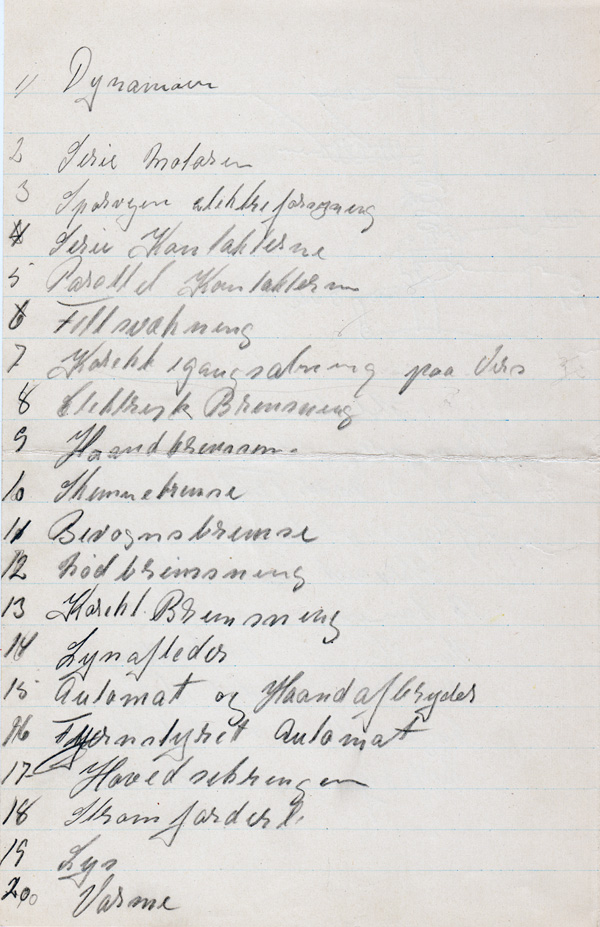 1) Dynamoen
2 Serie Motoren
3 Sporvogn elektreforsyning
4 Serie Kontakterne
5 Parallel Kontakterne
6 Feltsvækning
7 Korekt igangsætning paa Vers
8 Elektrisk Bremsning
9 Haandbremsen.
10 Skinnebremse
11 Bivognsbremse
12 Nødbremsning
13 Korekt Bremsning
14 Lynafleder
15 Automat og Haandafbryder
16 Fjernstyret Automat
17 Hovedsekringen
18 Strømfordel.
19 Lys
20 Varme